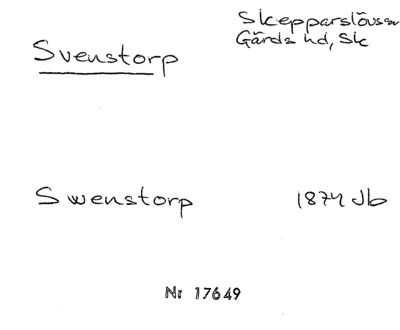 Skepparslövs sn
Gärds hd, Sk
Svenstorp
Swenstorp 1874 Jb
Nr 17649